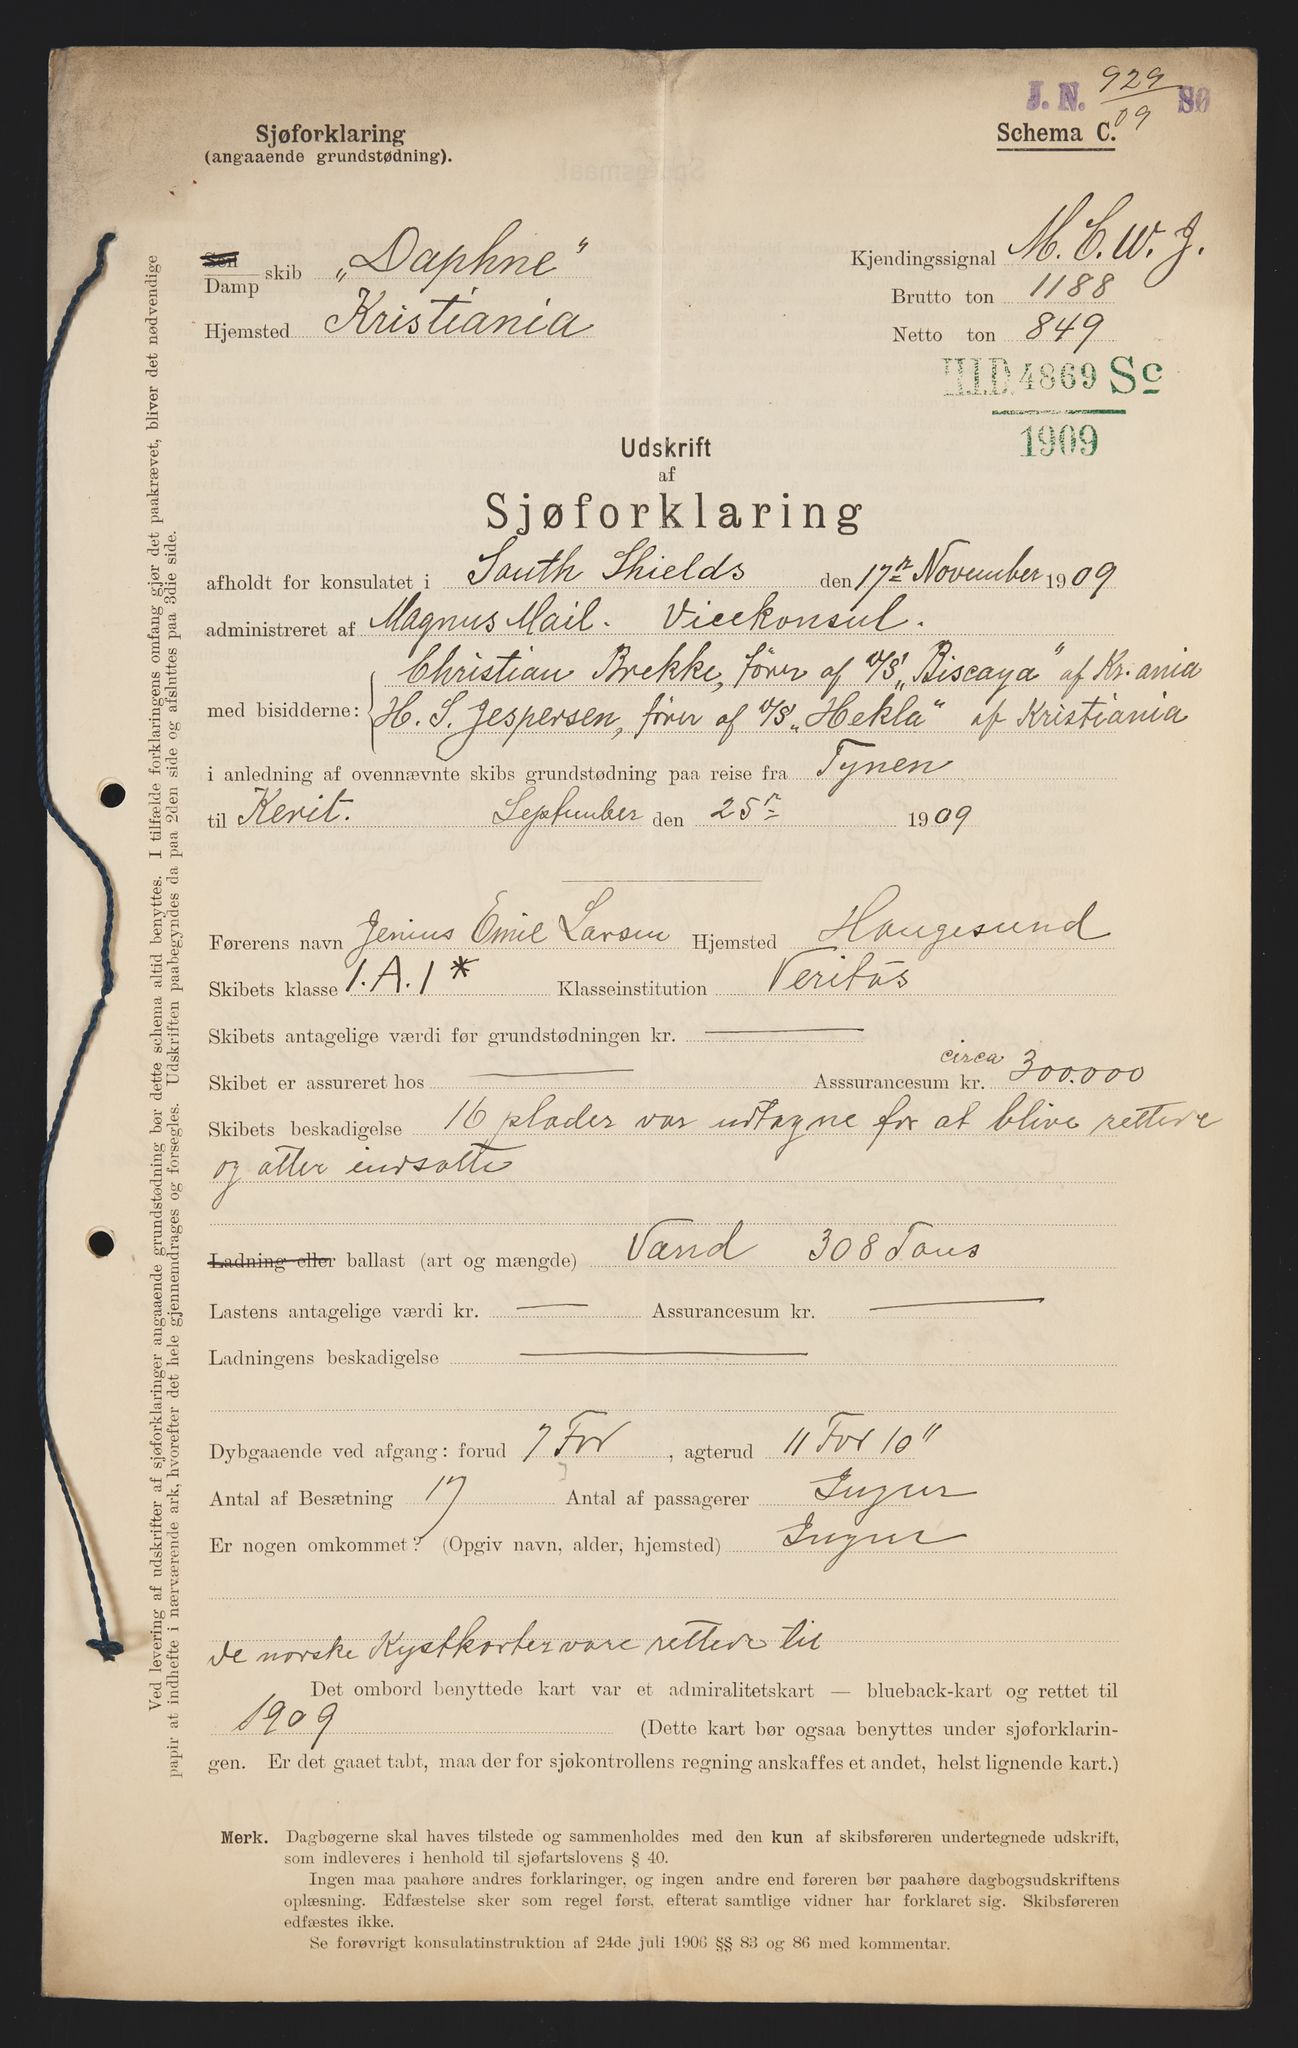 J. N. 929/09 80
Sjøforklaring
(angaaende grundstødning).
Schema C.
Seil
Damp skib „Daphne“
Hjemsted Kristiania
Kjendingssignal M. C. W. J.
Brutto ton 1188
Netto ton 849
H.I.D. 4869 Sc
1909
Udskrift
af
Sjøforklaring
afholdt for konsulatet i South Shields den 17de November 1909
administreret af Magnus Mail. Vicekonsul.
med bisidderne: Christian Brekke, fører af D/S „Biscaya“ af Kr.ania
H. S. Jespersen, fører af D/S „Hekla“ af Kristiania
i anledning af ovennævnte skibs grundstødning paa reise fra Tynen
til Kerit. September den 25de 1909
Førerens navn Jenius Emil Larsen Hjemsted Haugesund
Skibets klasse 1.A.1* Klasseinstitution Veritas
Skibets antagelige værdi før grundstødningen kr.
Skibet er assureret hos Asssurancesum kr. circa 300.000
Skibets beskadigelse 16 plader var udtagne for at blive rettede
og atter indsatte
Ladning eller ballast (art og mængde) Vand 308 Tons
Lastens antagelige værdi kr. Assurancesum kr.
Ladningens beskadigelse
Dybgaaende ved afgang: forud 7 Fod, agterud 11 Fod 10"
Antal af Besætning 17 Antal af passagerer Ingen
Er nogen omkommet? (Opgiv navn, alder, hjemsted) Ingen
de norske Kystkarter vare rettede til
Det ombord benyttede kart var et admiralitetskart — blueback-kart og rettet til
1909 (Dette kart bør ogsaa benyttes under sjøforklarin-
gen. Er det gaaet tabt, maa der for sjøkontrollens regning anskaffes et andet, helst lignende kart.)
Merk. Dagbøgerne skal haves tilstede og sammenholdes med den kun af skibsføreren undertegnede udskrift,
som indleveres i henhold til sjøfartslovens § 40.
Ingen maa paahøre andres forklaringer, og ingen andre end føreren bør paahøre dagbogsudskriftens
oplæsning. Edfæstelse sker som regel først, efterat samtlige vidner har forklaret sig. Skibsføreren
edfæstes ikke.
Se forøvrigt konsulatinstruktion af 24de juli 1906 §§ 83 og 86 med kommentar.
Ved levering af udskrifter af sjøforklaringer angaaende grundstødning bør dette schema altid benyttes. I tilfælde forklaringens omfang gjør det paakrævet, bliver det nødvendige
papir at indhefte i nærværende ark, hvorefter det hele gjennemdrages og forsegles. Udskriften paabegyndes da paa 2den side og afsluttes paa 3die side.